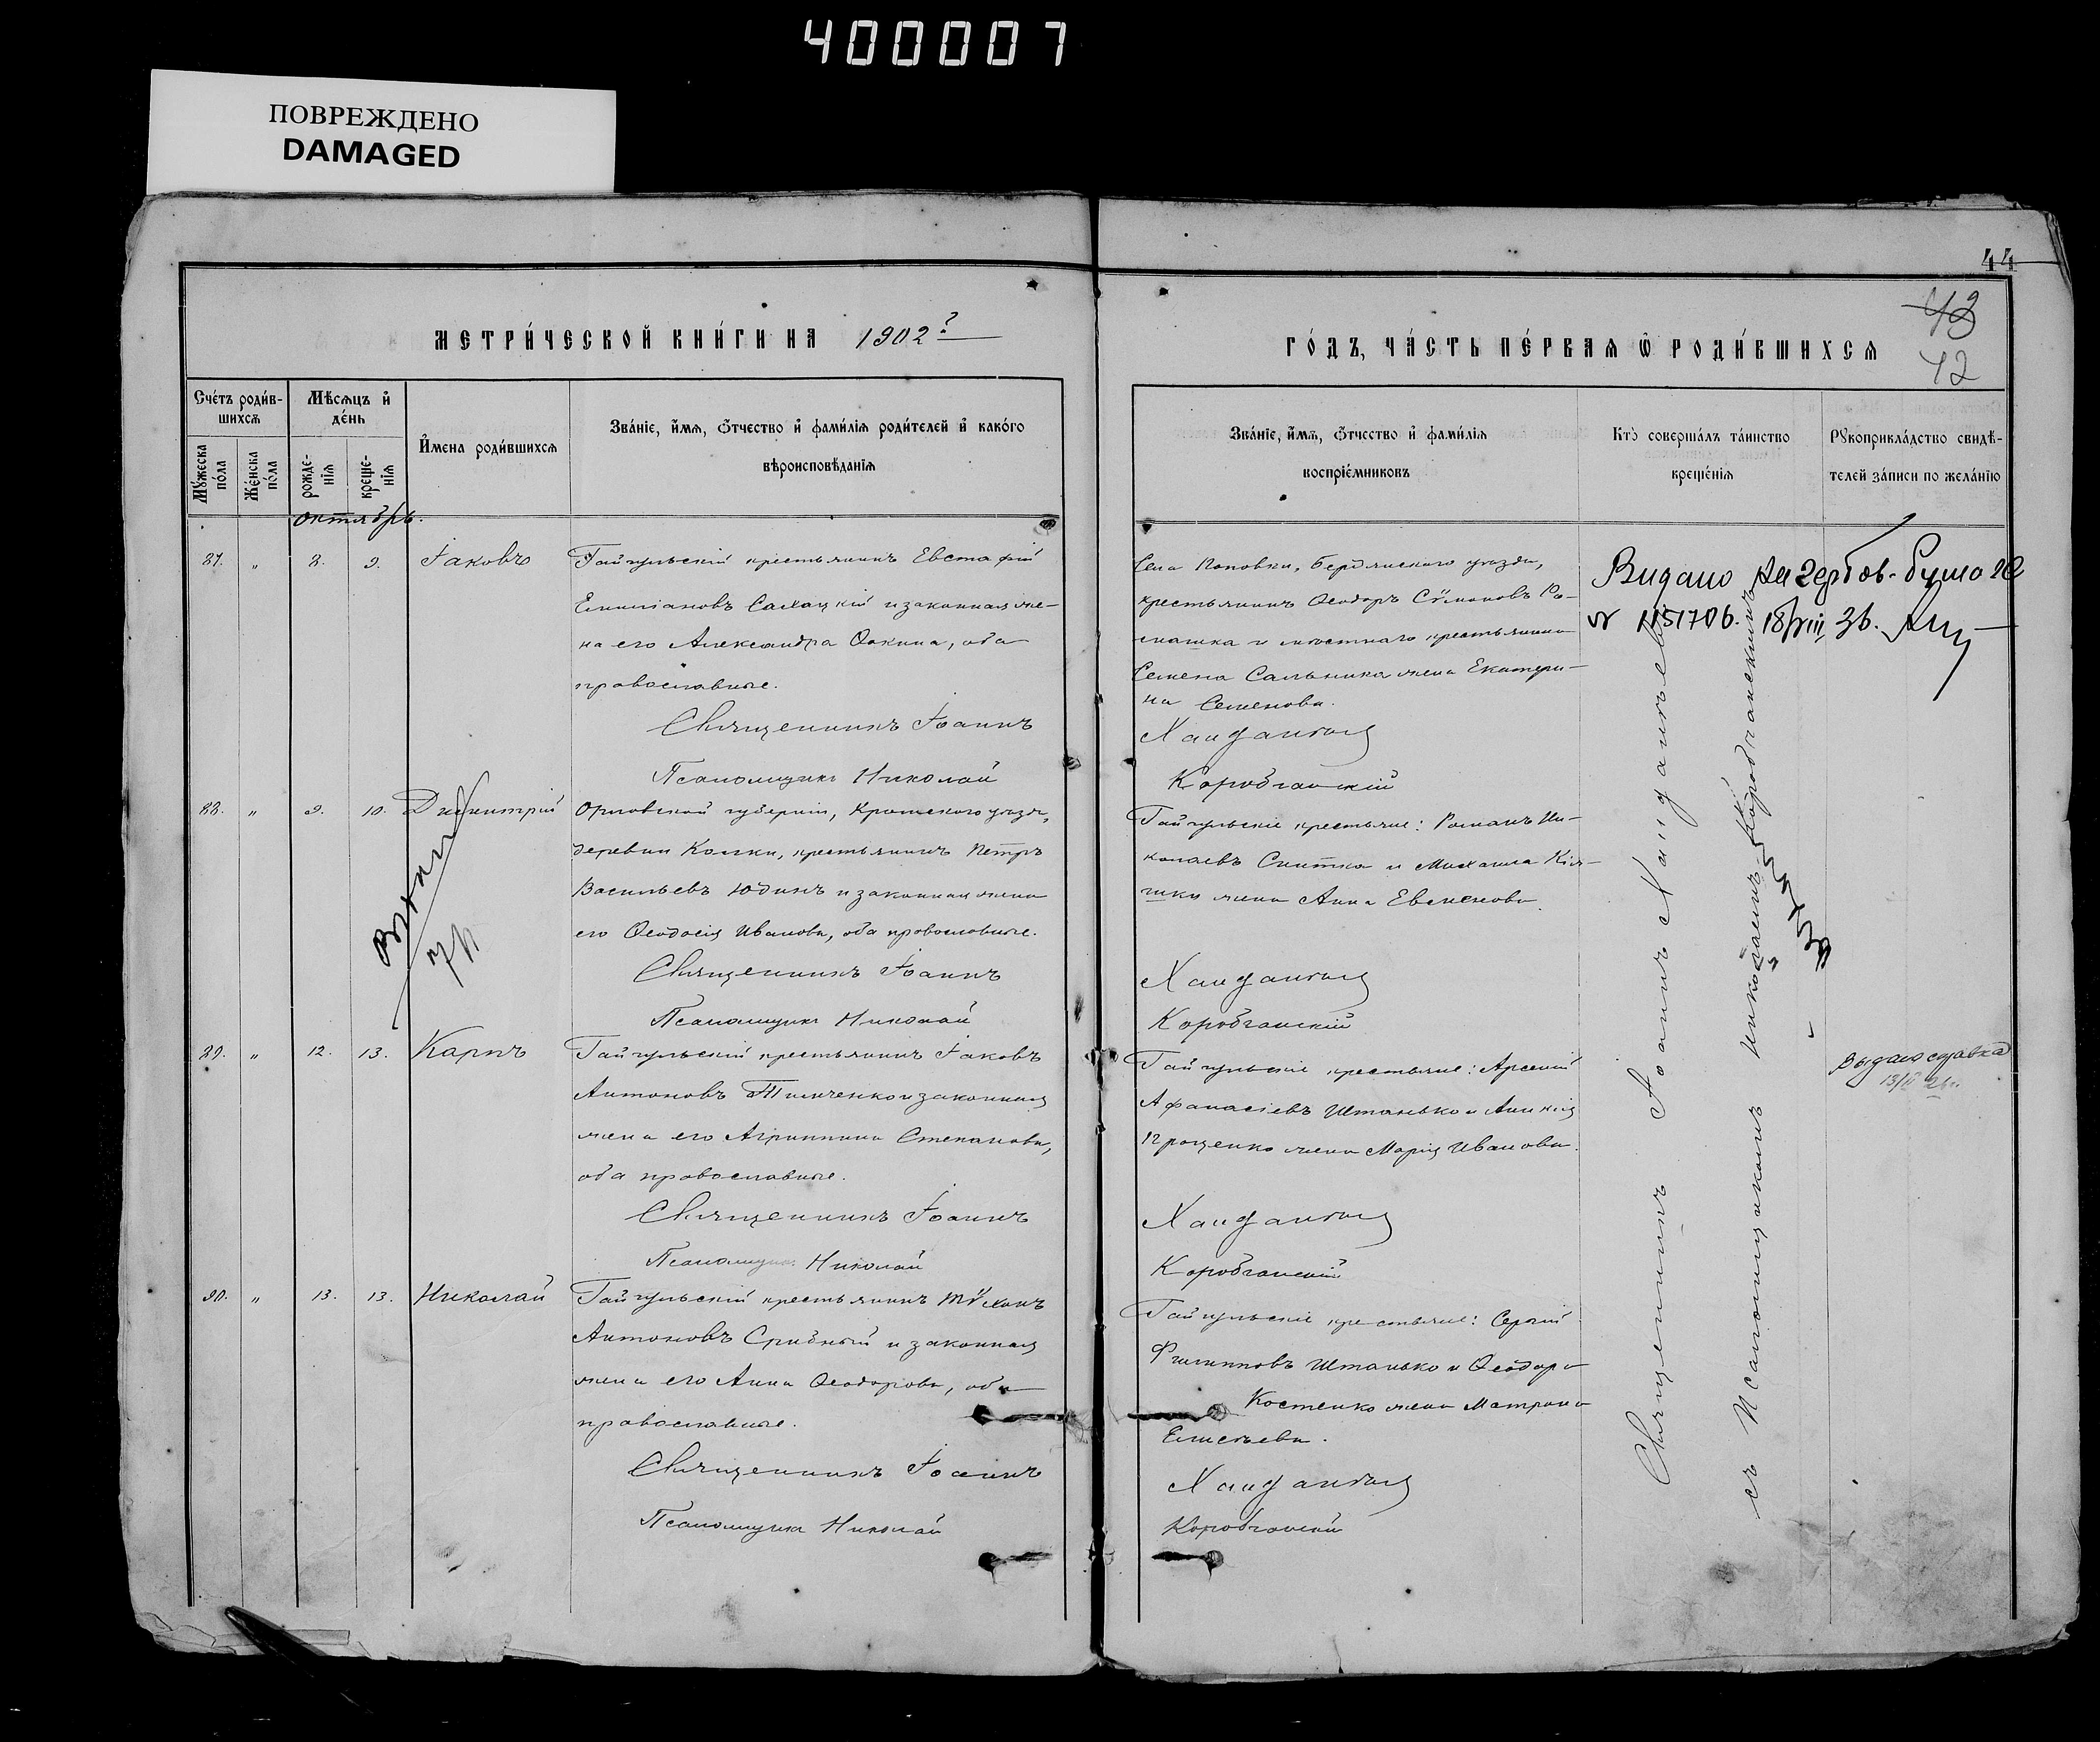 400007
ПОВРЕЖДЕНО
DAMAGED
44
43
42
МЕТРИ́ЧЕСКОЙ КНИ́ГИ НА 1902 г.
ГО́ДЪ, ЧА́СТЬ ПЕ́РВАѦ Ѽ РОДИ́ВШИХСѦ
Сче́тъ роди́в-
шихсѧ
Мѣсѧцъ и҆
де́нь
Мꙋ́жеска
по́ла
Же́нска
по́ла
рожде-
нїѧ
креще-
нїѧ
И҆мена роди́вшихсѧ
Зва́нїе, и҆́мѧ, ѻ҆́тчество и҆ фами́лїѧ роди́телей и҆ како́го
вѣроисповѣ́данїѧ
Зва́нїе, и҆́мѧ, ѻ҆́тчество и҆ фами́лїѧ
воспрїе́мниковъ
Кто̀ соверша́лъ та́инство
креще́нїѧ
Рꙋкоприкла́дство свидѣ́-
телей за́писи по жела́нїю
октябрь.
87. " 8. 9. Іаковъ
Гайчульскій крестьянинъ Евстафій
Емиліановъ Салацкій и законная же-
на его Александра Фокина, оба
православные.
Священникъ Іоаннъ
Псаломщикъ Николай
Села Поповки, Бердянскаго уѣзда,
крестьянинъ Ѳеодоръ Сѵмоновъ Ро-
машка и мѣстнаго крестьянина
Семена Сальника жена Екатери-
на Семенова.
Коробчанскій
Видано на гербов. бумазе
№ 115170 б. 18/VIII, 36.
88. " 9. 10. Димитрій
Орловской губерніи, Кромскаго уѣзда,
деревни Колки, крестьянинъ Петръ
Васильевъ Юдинъ и законная жена
его Ѳеодосія Иванова, оба православные.
Священникъ Іоаннъ
Псаломщикъ Николай
Гайчульскіе крестьяне: Романъ Ни-
колаевъ Скитка и Михаила Кля-
жена Анна Евсикова.
Коробчанскій
89. " 12. 13. Карпъ
Гайчульскій крестьянинъ Іаковъ
Антоновъ Тимченко и законная
жена его Агриппина Степанова,
оба православные.
Священникъ Іоаннъ
Псаломщикъ Николай
Гайчульскіе крестьяне: Арсеній
Афанасіевъ Штанько и Аникія
Проценко жена Марія Иванова.
Коробчанскій
Выдана справка
90. " 13. 13. Николай
Гайчульскій крестьянинъ Тѵхонъ
Антоновъ Срибный и законная
жена его Анна Ѳеодорова, оба
православные.
Священникъ Іоаннъ
Псаломщикъ Николай
Гайчульскіе крестьяне: Сергій
Филипповъ Штанько и Ѳеодора
Костенко жена Матрона
Елисѣева.
Коробчанскій
Священникъ Іоаннъ
съ Псаломщикомъ Николаемъ Коробчанскимъ